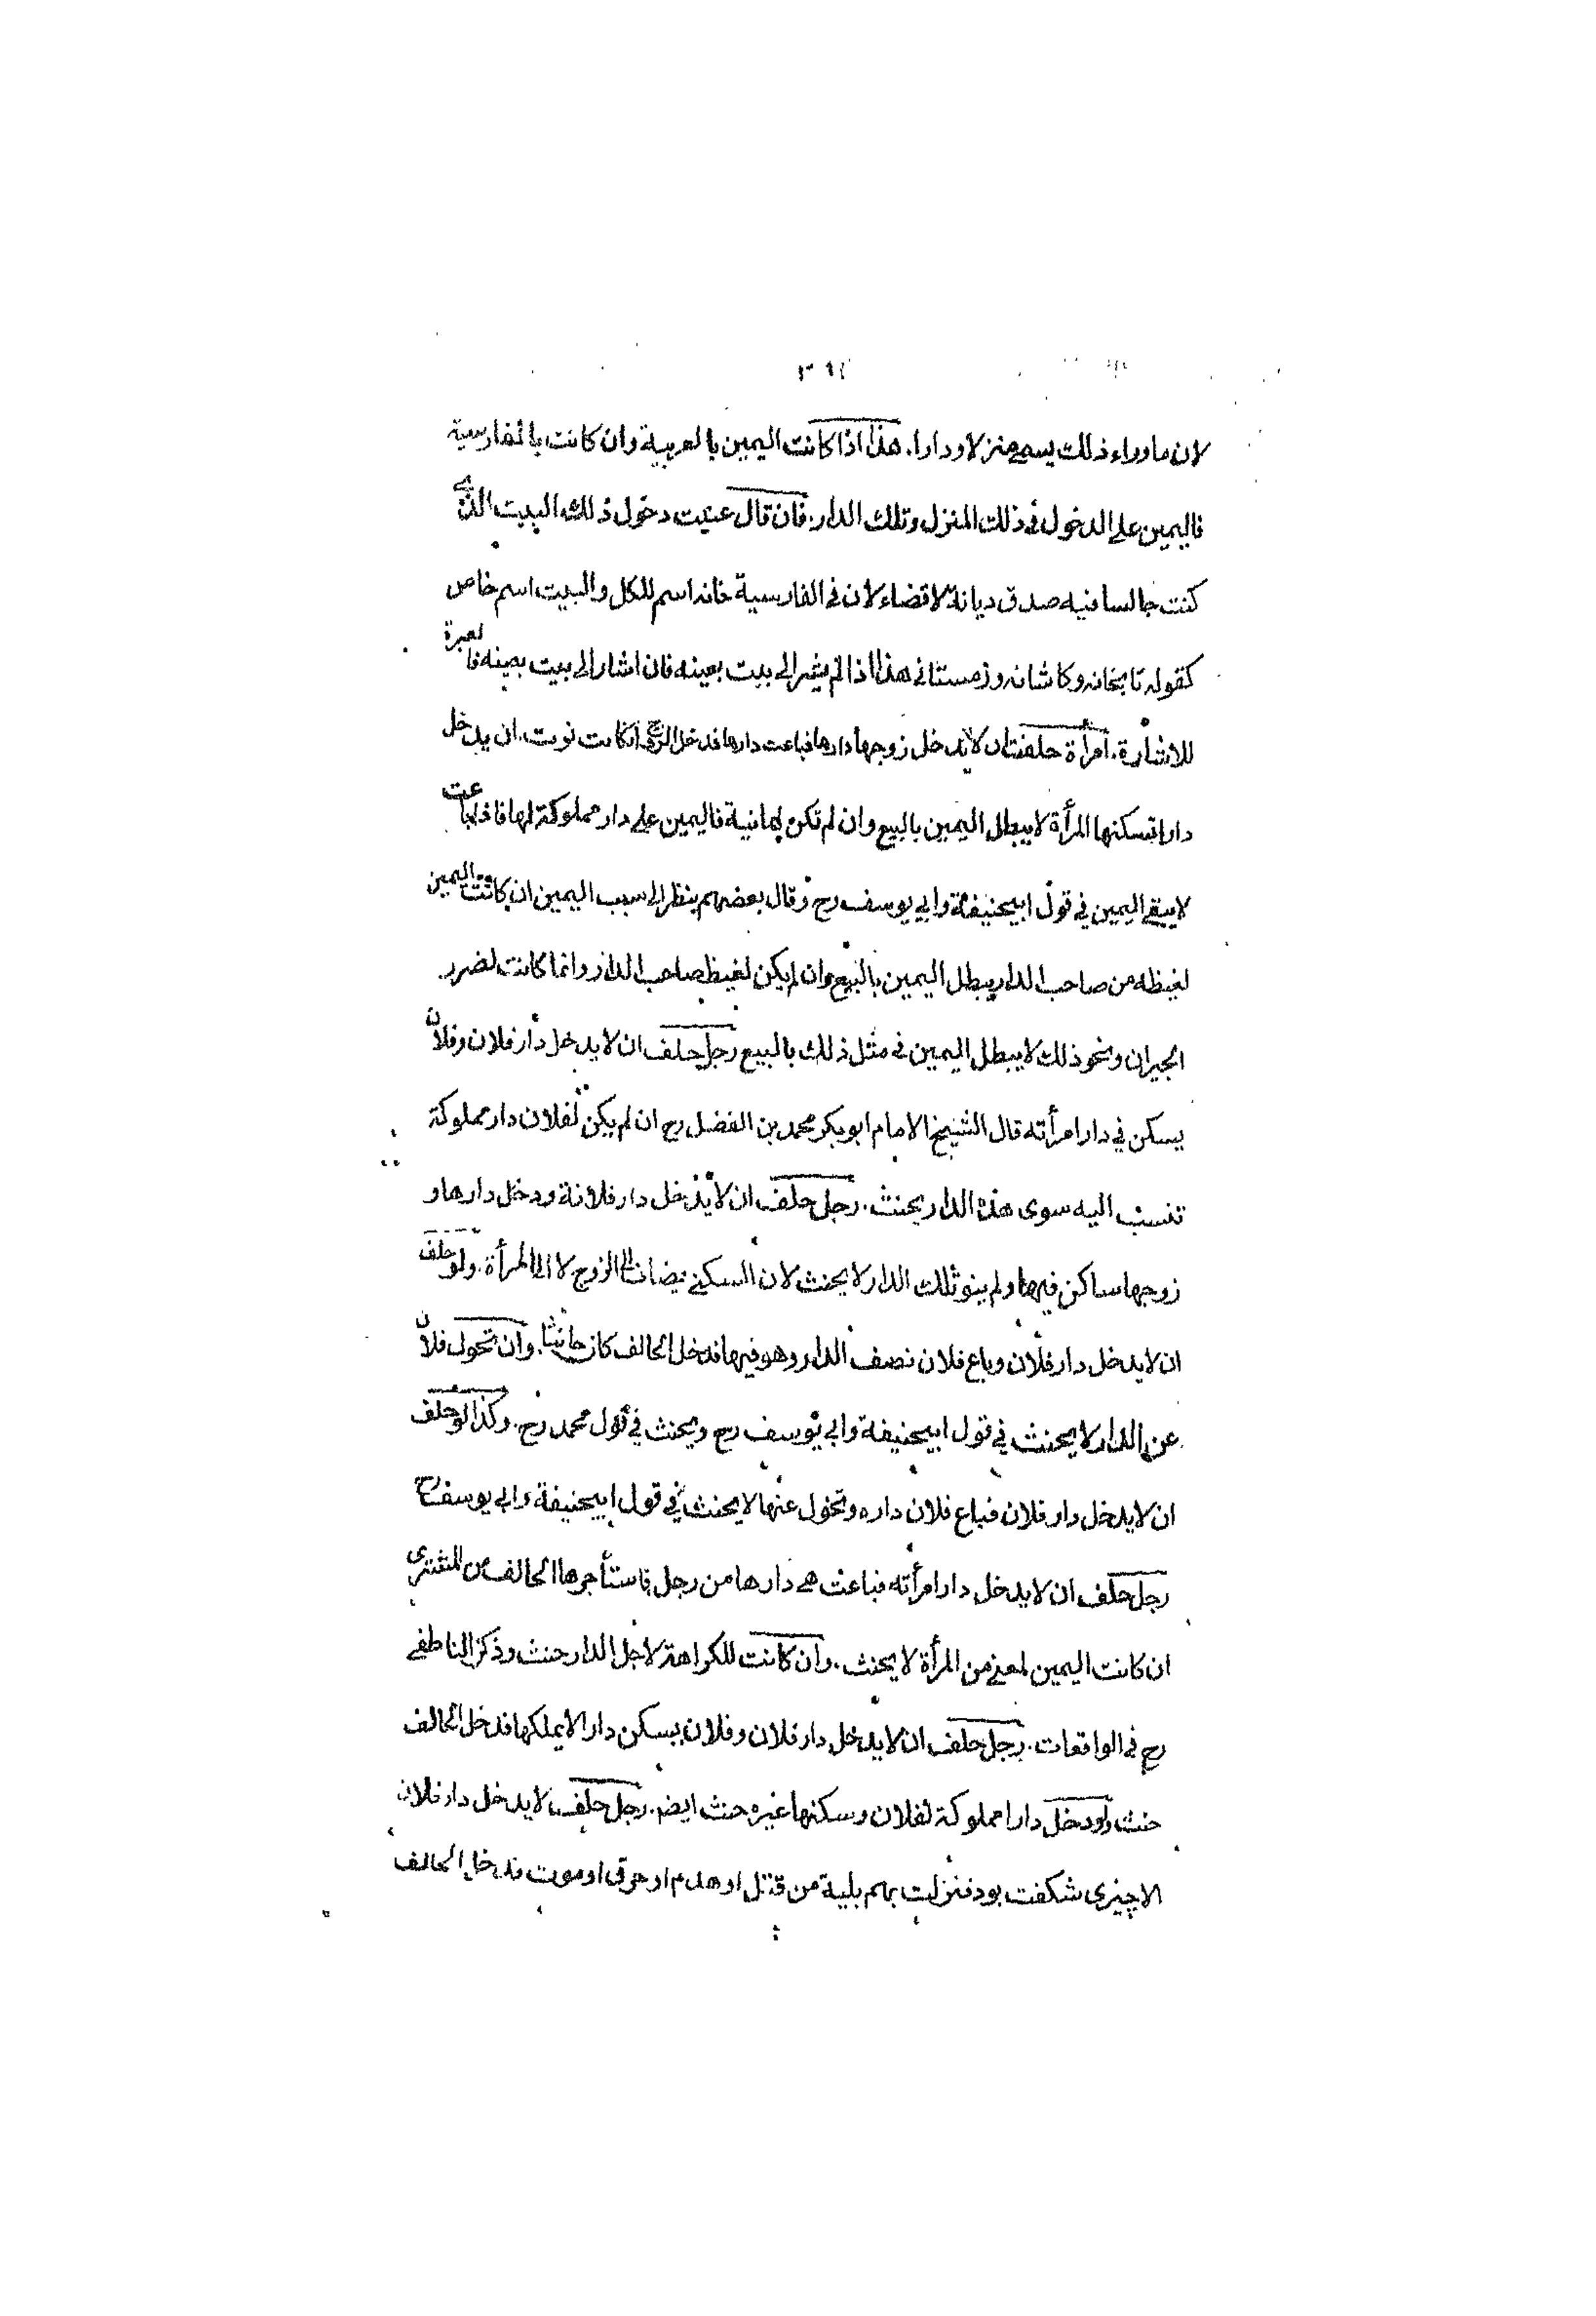 لان ماوراء ذلك يسمى منزلا ودارا. هذا اذا كانت اليمين بالعربية وان كانت بالفارسية
فاليمين على الدخول في ذلك المنزل وتلك الدار. فان قال عنيت دخول ذلك البيت الذي
كنت جالسا فيه صدق ديانة لا قضاء لان في الفارسية خانه اسم للكل والبيت اسم خاص
كقوله تابخانه وكاشانه وزمستانى هذا اذا لم يشر الى بيت بعينه فان اشار الى بيت بعينه فالعبرة
للاشارة. امرأة حلفت ان لا يدخل زوجها دارها فباعت دارها فدخل الزوج ان كانت نوت ان يدخل
دارا تسكنها المرأة لا يبطل اليمين بالبيع وان لم تكن لها نية فاليمين على دار مملوكة لها فاذا باعت
لا يبقى اليمين في قول ابيحنيفة وابي يوسف رح وقال بعضهم ينظر الى سبب اليمين ان كانت اليمين
لغيظه من صاحب الدار يبطل اليمين بالبيع وان لم يكن لغيظ صاحب الدار وانما كانت لضرر
الجيران ونحو ذلك لا يبطل اليمين في مثل ذلك بالبيع رجل حلف ان لا يدخل دار فلان وفلان
يسكن في دار امرأته قال الشيخ الامام ابو بكر محمد بن الفضل رح ان لم يكن لفلان دار مملوكة
تنسب اليه سوى هذه الدار يحنث. رجل حلف ان لا يدخل دار فلانة ودخل دارها و
زوجها ساكن فيها ولم ينو تلك الدار لا يحنث لان السكنى يضاف الى الزوج لا الى المرأة. ولو حلف
ان لا يدخل دار فلان وباع فلان نصف الدار وهو فيها فدخل الحالف كان حانثا. وان تحول فلان
عن الدار لا يحنث في قول ابيحنيفة وابي يوسف رح ويحنث في قول محمد رح. وكذا لو حلف
ان لا يدخل دار فلان فباع فلان داره وتحول عنها لا يحنث في قول ابيحنيفة وابي يوسف رح
رجل حلف ان لا يدخل دار امرأته فباعت هي دارها من رجل فاستأجرها الحالف من المشترى
ان كانت اليمين لمعنى من المرأة لا يحنث. وان كانت للكراهة لاجل الدار حنث وذكر الناطفى
رح في الواقعات. رجل حلف ان لا يدخل دار فلان وفلان يسكن دارا لا يملكها فدخل الحالف
حنث ولو دخل دارا مملوكة لفلان وسكنها غيره حنث ايضم. رجل حلف لا يدخل دار فلان
الا چيزى شكفت بود فنزلت بهم بلية من قتل او هدم او حرق او موت فدخل الحالف